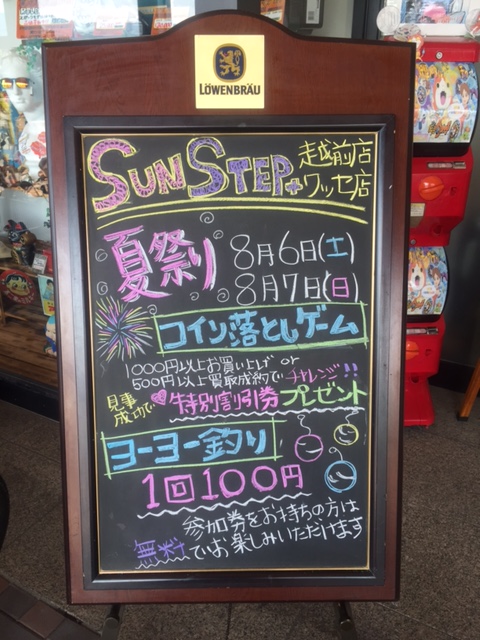 LÖWENBRÄU
SUNSTEP+ 越前店
ワッセ店
夏祭り 8月6日(土)
8月7日(日)
コイン落としゲーム
1000円以上お買い上げ or
500円以上買取成約でチャレンジ!!
見事成功で♥特別割引券プレゼント
ヨーヨー釣り
1回100円
参加券をお持ちの方は
無料でお楽しみいただけます